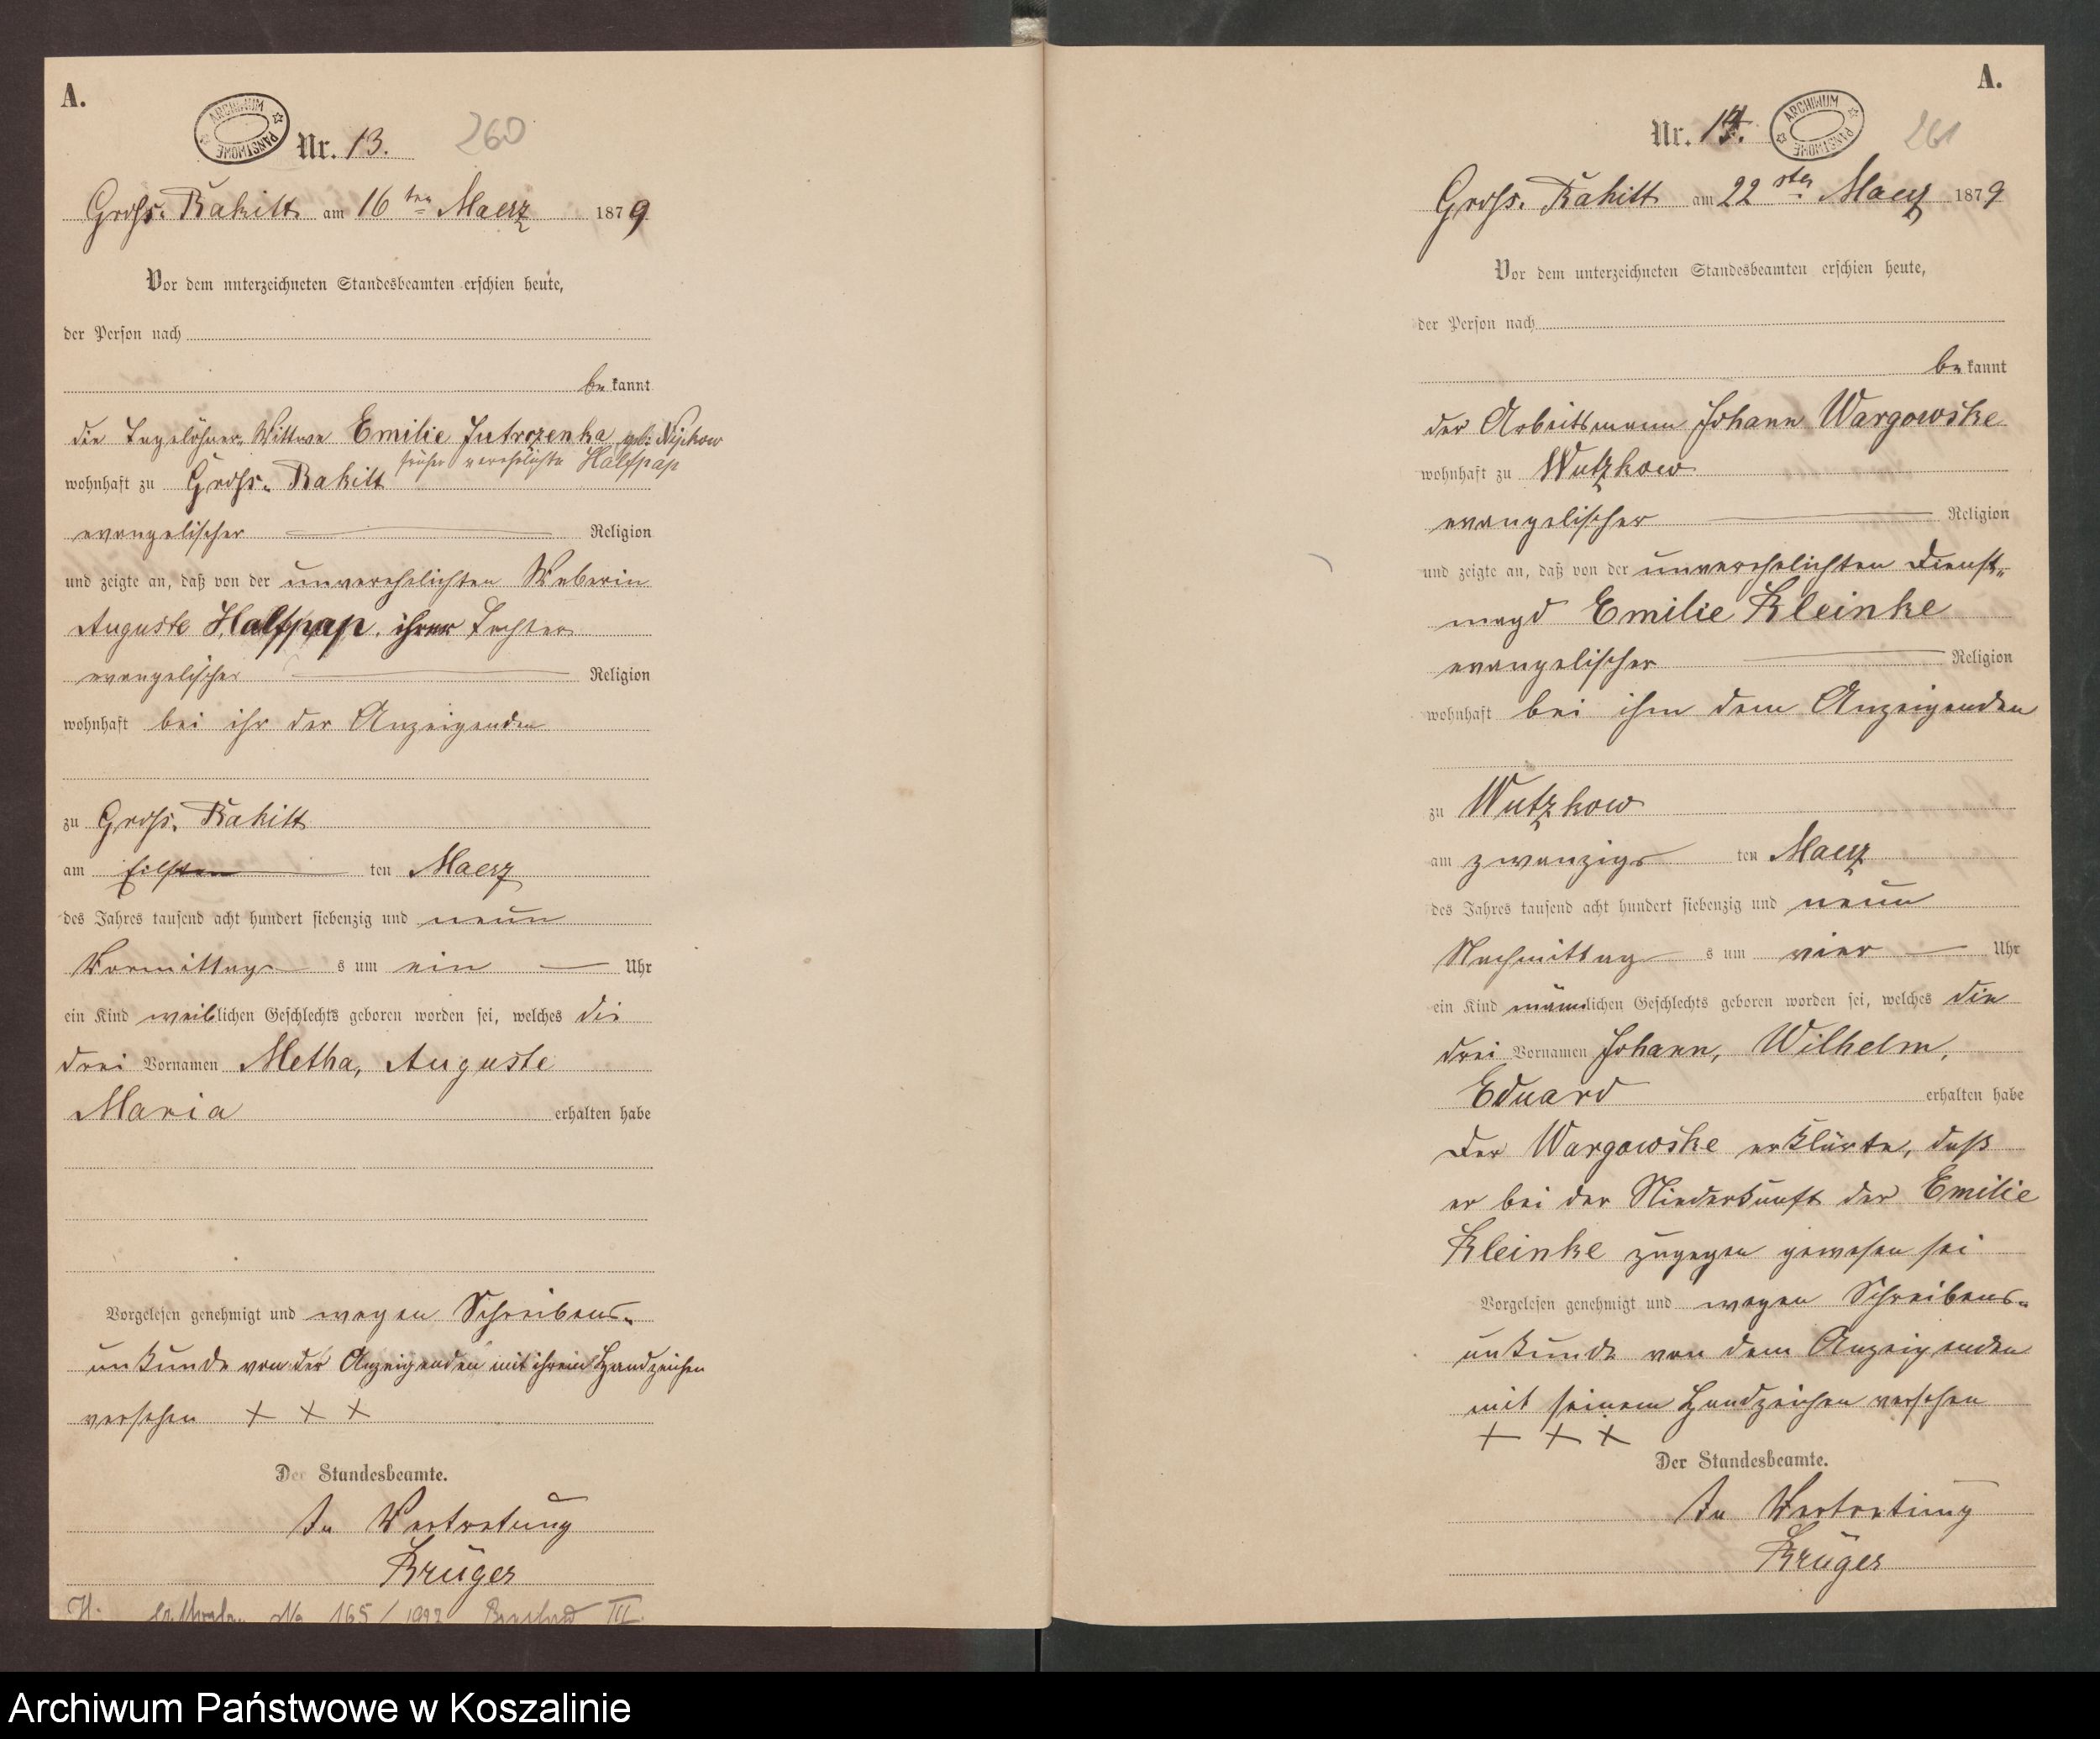 A.
ARCHIWUM PAŃSTWOWE
Nr. 13.
260
Gross-Rakitt am 16ten Maerz 1879
Vor dem unterzeichneten Standesbeamten erschien heute,
der Person nach
bekannt
die Tagelöhner-Wittwe Emilie Jutrozenka geb:
früher verehelichte Halfpap
wohnhaft zu Gross-Rakitt
evangelischer Religion
und zeigte an, daß von der unverehelichten Weberin
Auguste Halfpap, ihrer Tochter
evangelischer Religion
wohnhaft bei ihr der Anzeigenden
zu Gross-Rakitt
am eilften ten Maerz
des Jahres tausend acht hundert siebenzig und neun
Vormittags um ein Uhr
ein Kind weiblichen Geschlechts geboren worden sei, welches die
drei Vornamen Metha, Auguste
Maria erhalten habe
Vorgelesen genehmigt und wegen Schreibens-
unkunde von der Anzeigenden mit ihrem Handzeichen
versehen + + +
Der Standesbeamte.
In Vertretung
Krüger
H. No 165/ III.
A.
Nr. 14.
ARCHIWUM PAŃSTWOWE
261
Gross-Rakitt am 22sten Maerz 1879
Vor dem unterzeichneten Standesbeamten erschien heute,
der Person nach
bekannt
der Arbeitsmann Johann Wargowske
wohnhaft zu Wutzkow
evangelischer Religion
und zeigte an, daß von der unverehelichten Dienst-
magd Emilie Kleinke
evangelischer Religion
wohnhaft bei ihm dem Anzeigenden
zu Wutzkow
am zwanzigs ten Maerz
des Jahres tausend acht hundert siebenzig und neun
Nachmittags um vier Uhr
ein Kind männlichen Geschlechts geboren worden sei, welches die
drei Vornamen Johann, Wilhelm,
Eduard erhalten habe
Der Wargowske erklärte, daß
er bei der Niederkunft der Emilie
Kleinke zugegen gewesen sei
Vorgelesen genehmigt und wegen Schreibens-
unkunde von dem Anzeigenden
mit seinem Handzeichen versehen
+ + +
Der Standesbeamte.
In Vertretung
Krüger
Archiwum Państwowe w Koszalinie